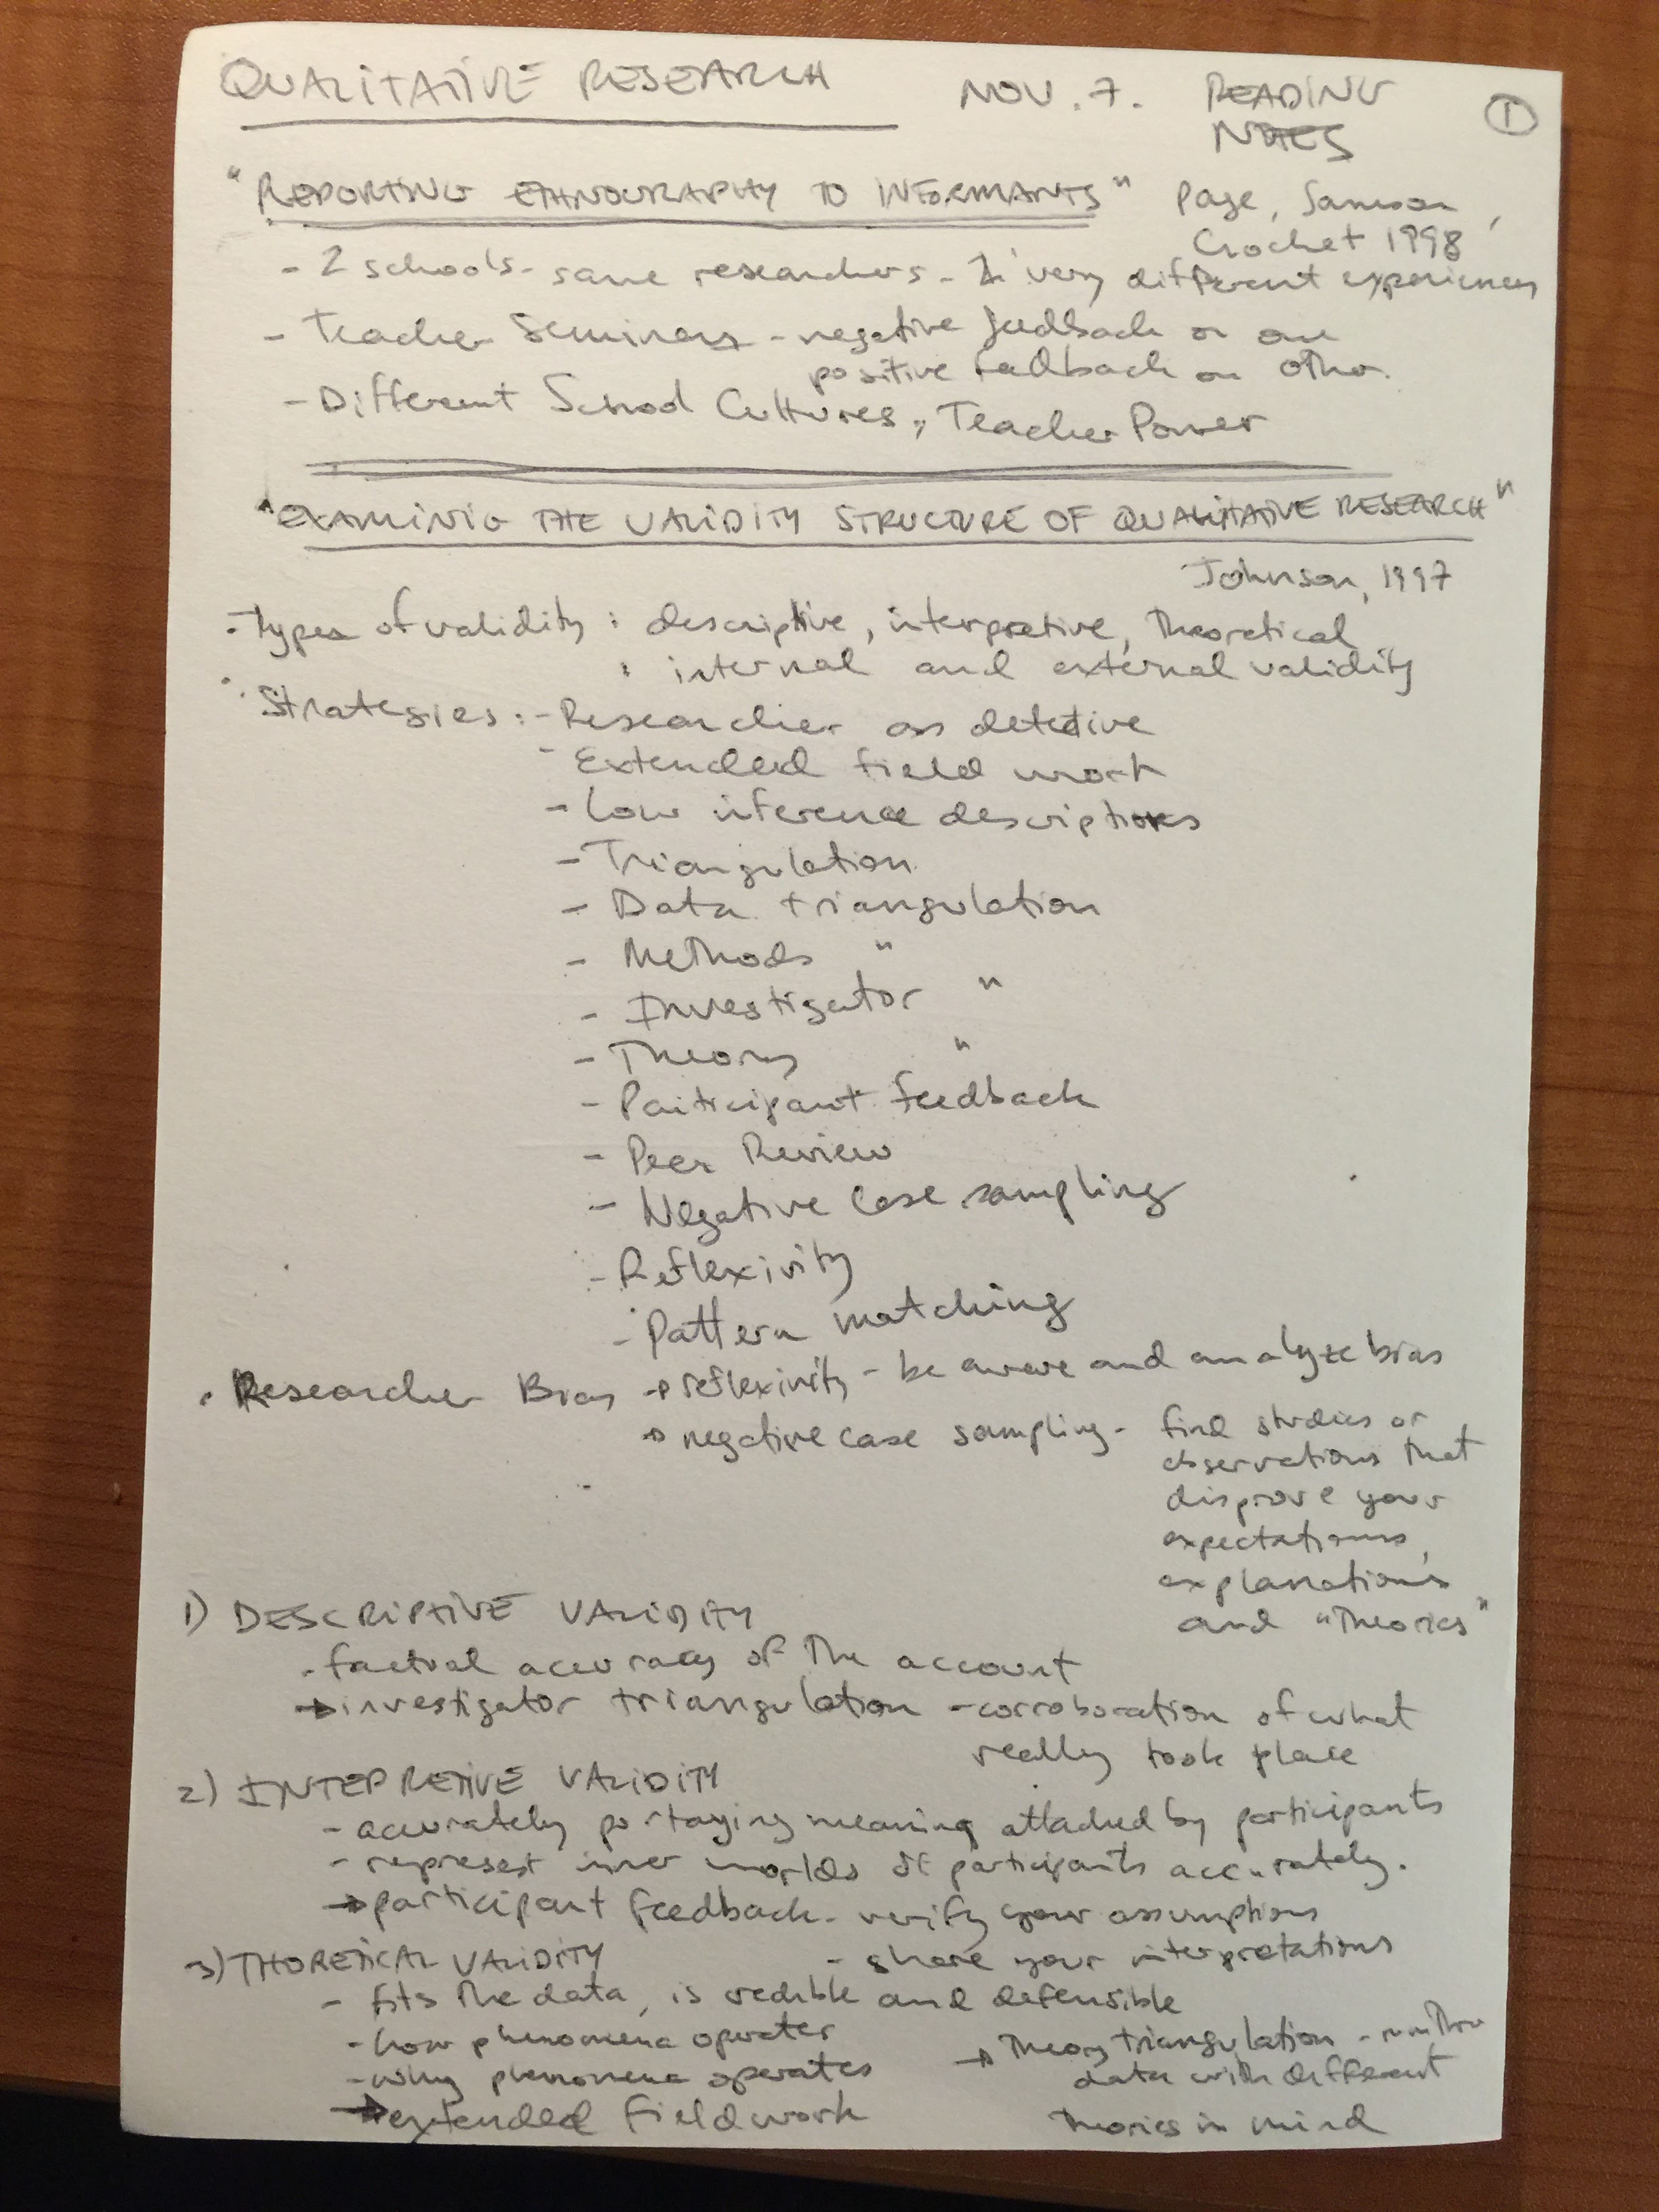 QUALITATIVE RESEARCH NOV. 7. READING ①
NOTES
"REPORTING ETHNOGRAPHY TO INFORMANTS" Page, Samson,
Crochet 1998
- 2 schools - same researchers - 2 very different experiences
- Teacher Seminars - negative feedback on one
positive feedback on other.
- Different School Cultures, Teacher Power
"EXAMINIG THE VALIDITY STRUCTURE OF QUALITATIVE RESEARCH"
Johnson, 1997
- Types of validity : descriptive, interpretive, theoretical
: internal and external validity
· Strategies : - Researcher as detective
- Extended field work
- low inference descriptions
- Triangulation
- Data triangulation
- Methods "
- Investigator "
- Theory "
- Participant feedback
- Peer Review
- Negative case sampling
- Reflexivity
- Pattern matching
· Researcher Bias → reflexivity - be aware and analyze bias
→ negative case sampling - find studies or
observations that
disprove your
expectations,
explanations
and "theories"
1) DESCRIPTIVE VALIDITY
· factual accuracy of the account
→ investigator triangulation - corroboration of what
really took place
2) INTEPRETIVE VALIDITY
- accurately portaying meaning attached by participants
- represest inner worlds of participants accurately.
→ participant feedback - verify your assumptions
- share your interpretations
3) THORETICAL VALIDITY
- fits the data, is credible and defensible
- how phenomena operates
- why phenomena operates
→ extended fieldwork
→ theory triangulation -
data with different
theories in mind